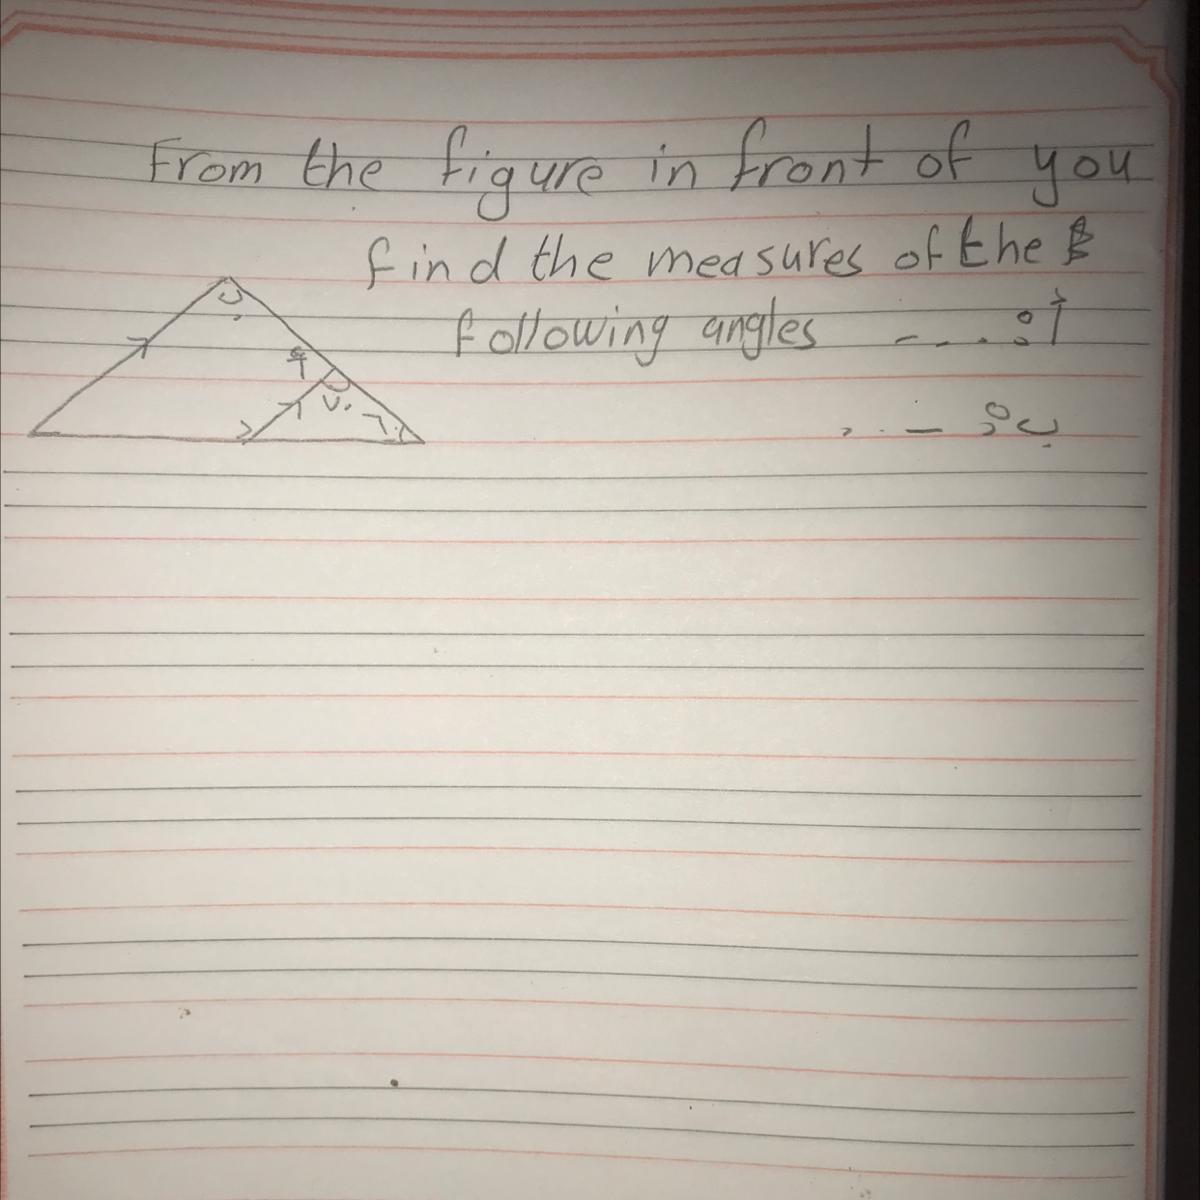 From the figure in front of you
find the measures of the
following angles - - . . : أْ
, . . — : بْ
بْ
أ
٧٠